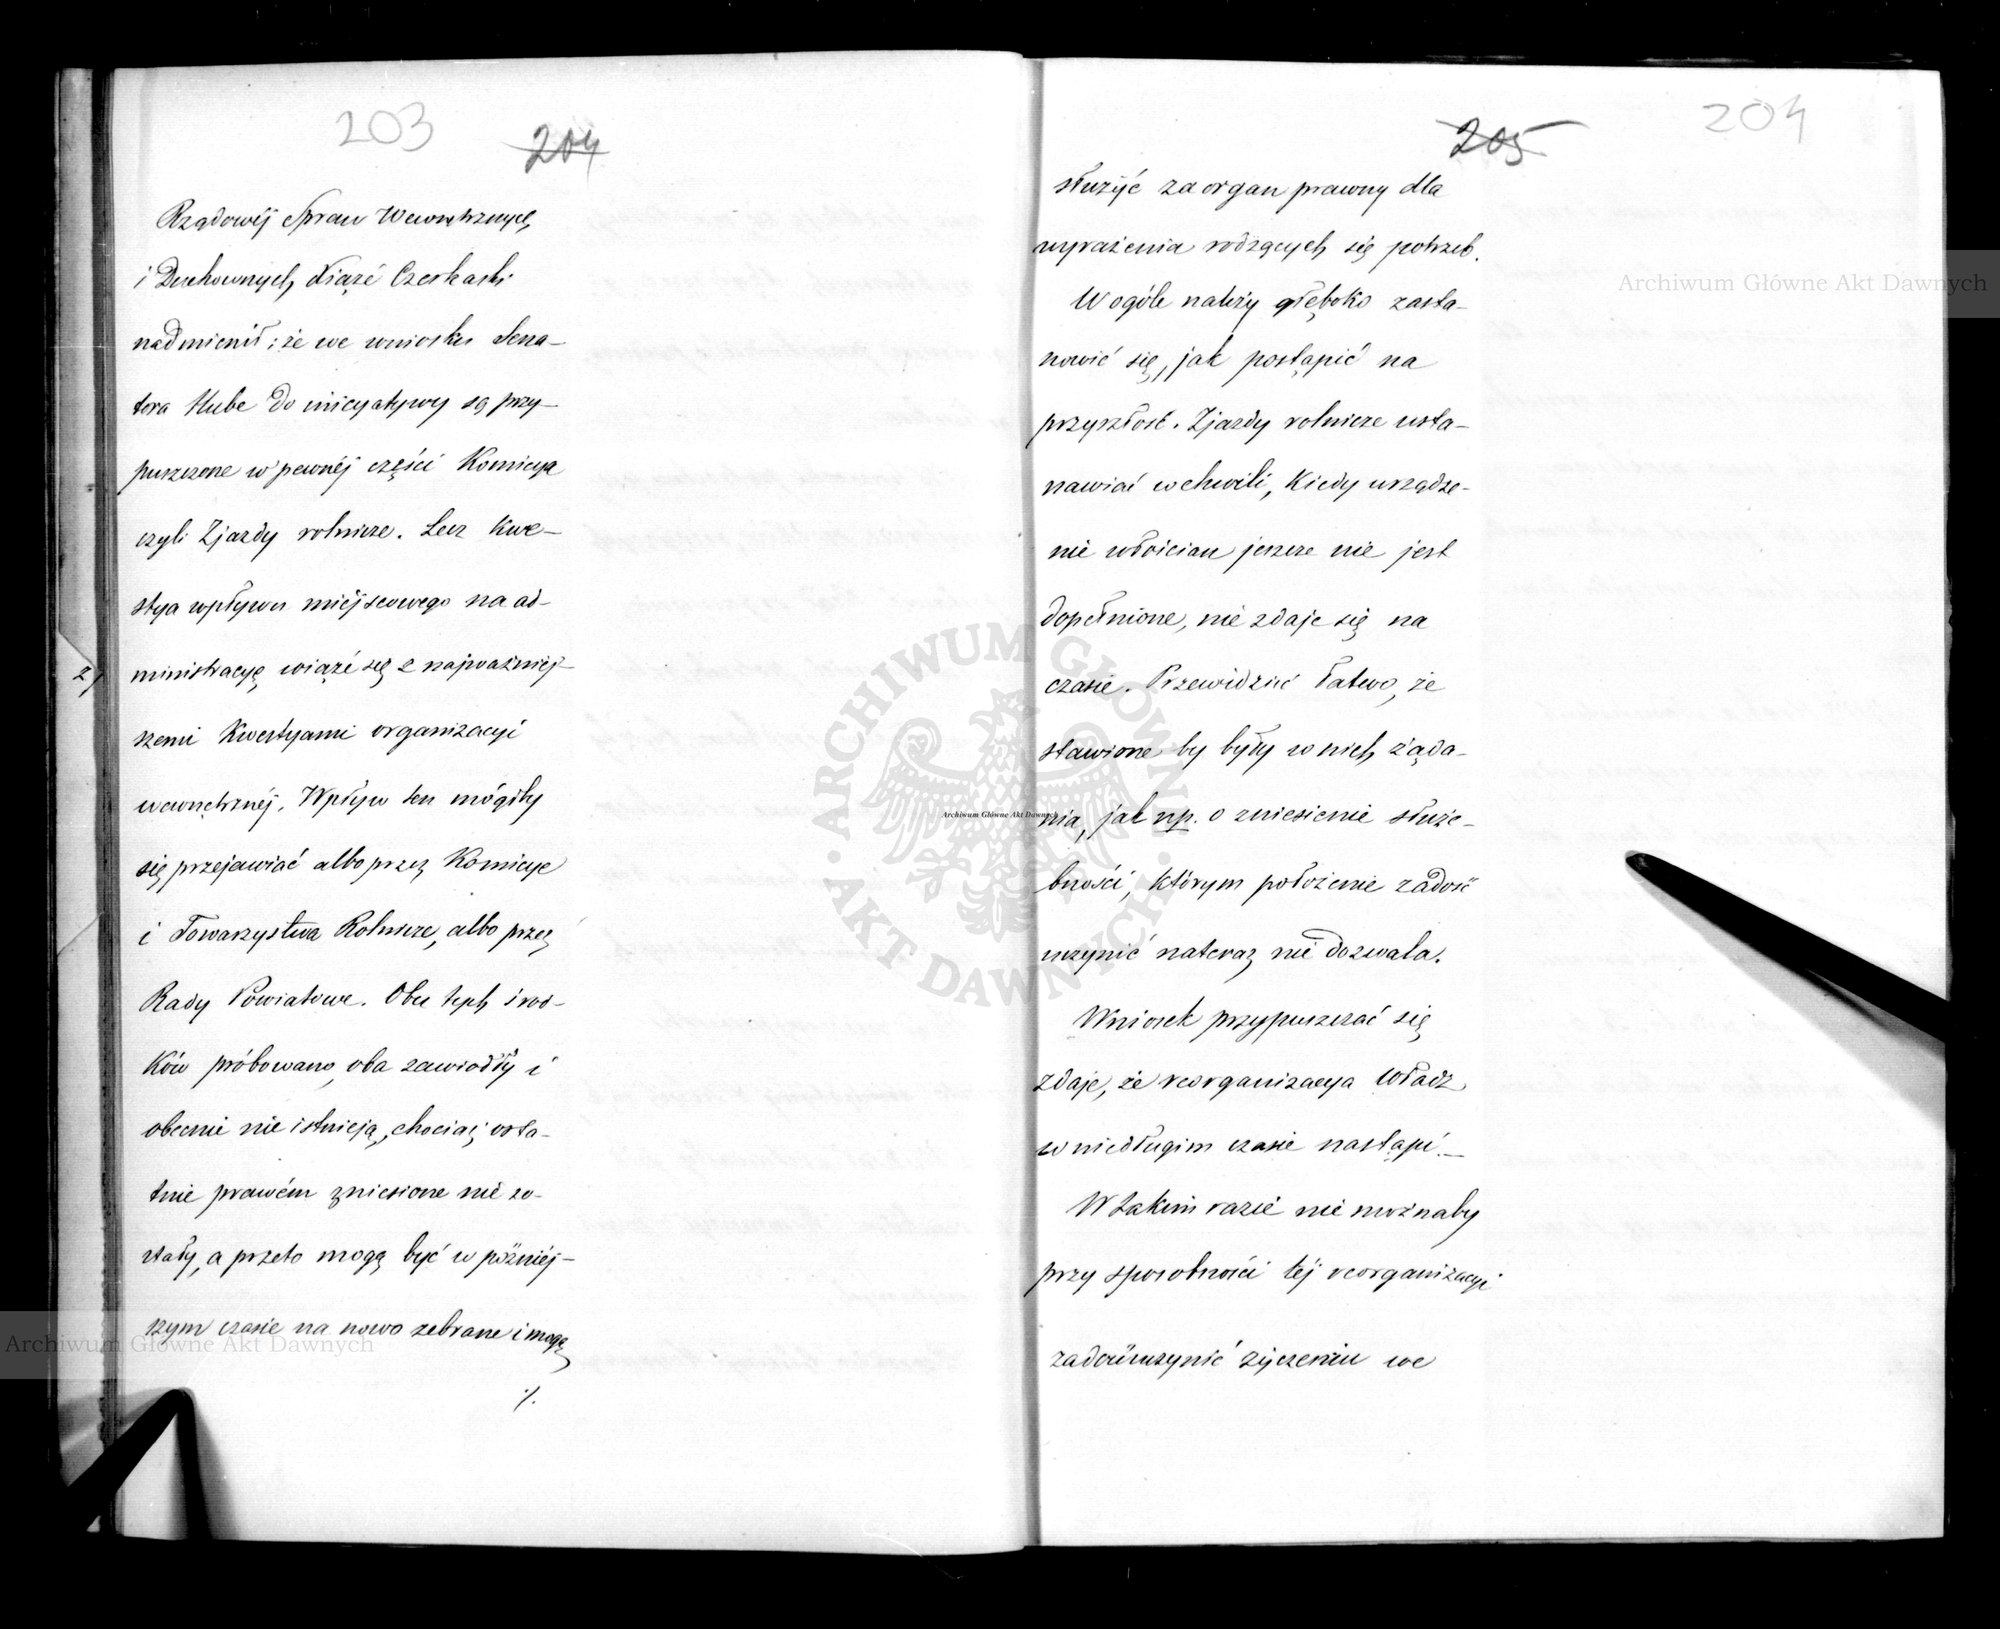 203
204
Rządowéj Spraw Wewnętrznych
i Duchownych, Xiążę Czerkaski
nadmienił; że we wniosku Sena-
tora Hube do inicyatywy są przy-
puszczone w pewnéj części Komicya
czyli Zjazdy rolnicze. Lecz kwe-
stya wpływu miéjscowego na ad-
2)
ministracyę, wiąże się z najważniej-
szemi kwestyami organizacyi
wewnętrznéj. Wpływ ten mógłby
się przejawiać albo przez Komicye
i Towarzystwa Rolnicze, albo przez
Rady Powiatowe. Obu tych środ-
ków próbowano, oba zawiodły i
obecnie nie istnieją, chociaż osta-
tnie prawém zniesione nie zo-
stały, a przeto mogą być w późniéj-
szym czasie na nowo zebrane i mogą
./.
205
204
służyć za organ prawny dla
wyrażenia rodzących się potrzeb.
W ogóle należy głęboko zasta-
nowić się, jak postąpić na
przyszłość. Zjazdy rolnicze usta-
nawiać w chwili, kiedy urządze-
nie włościan jeszcze nie jest
dopełnione, nie zdaje się na
czasie. Przewidzieć łatwo, że
stawione by były w nich żąda-
nia, jak np. o zniesienie służe-
bności, którym położenie zadość
uczynić nateraz nie dozwala.
Wniosek przypuszczać się
zdaje, że reorganizacya Władz
w niedługim czasie nastąpi.—
W takim razie nie możnaby
przy sposobności téj reorganizacyi
zadośćuczynić życzeniu we
Archiwum Główne Akt Dawnych
Archiwum Główne Akt Dawnych
Archiwum Główne Akt Dawnych
ARCHIWUM GŁÓWNE
AKT DAWNYCH